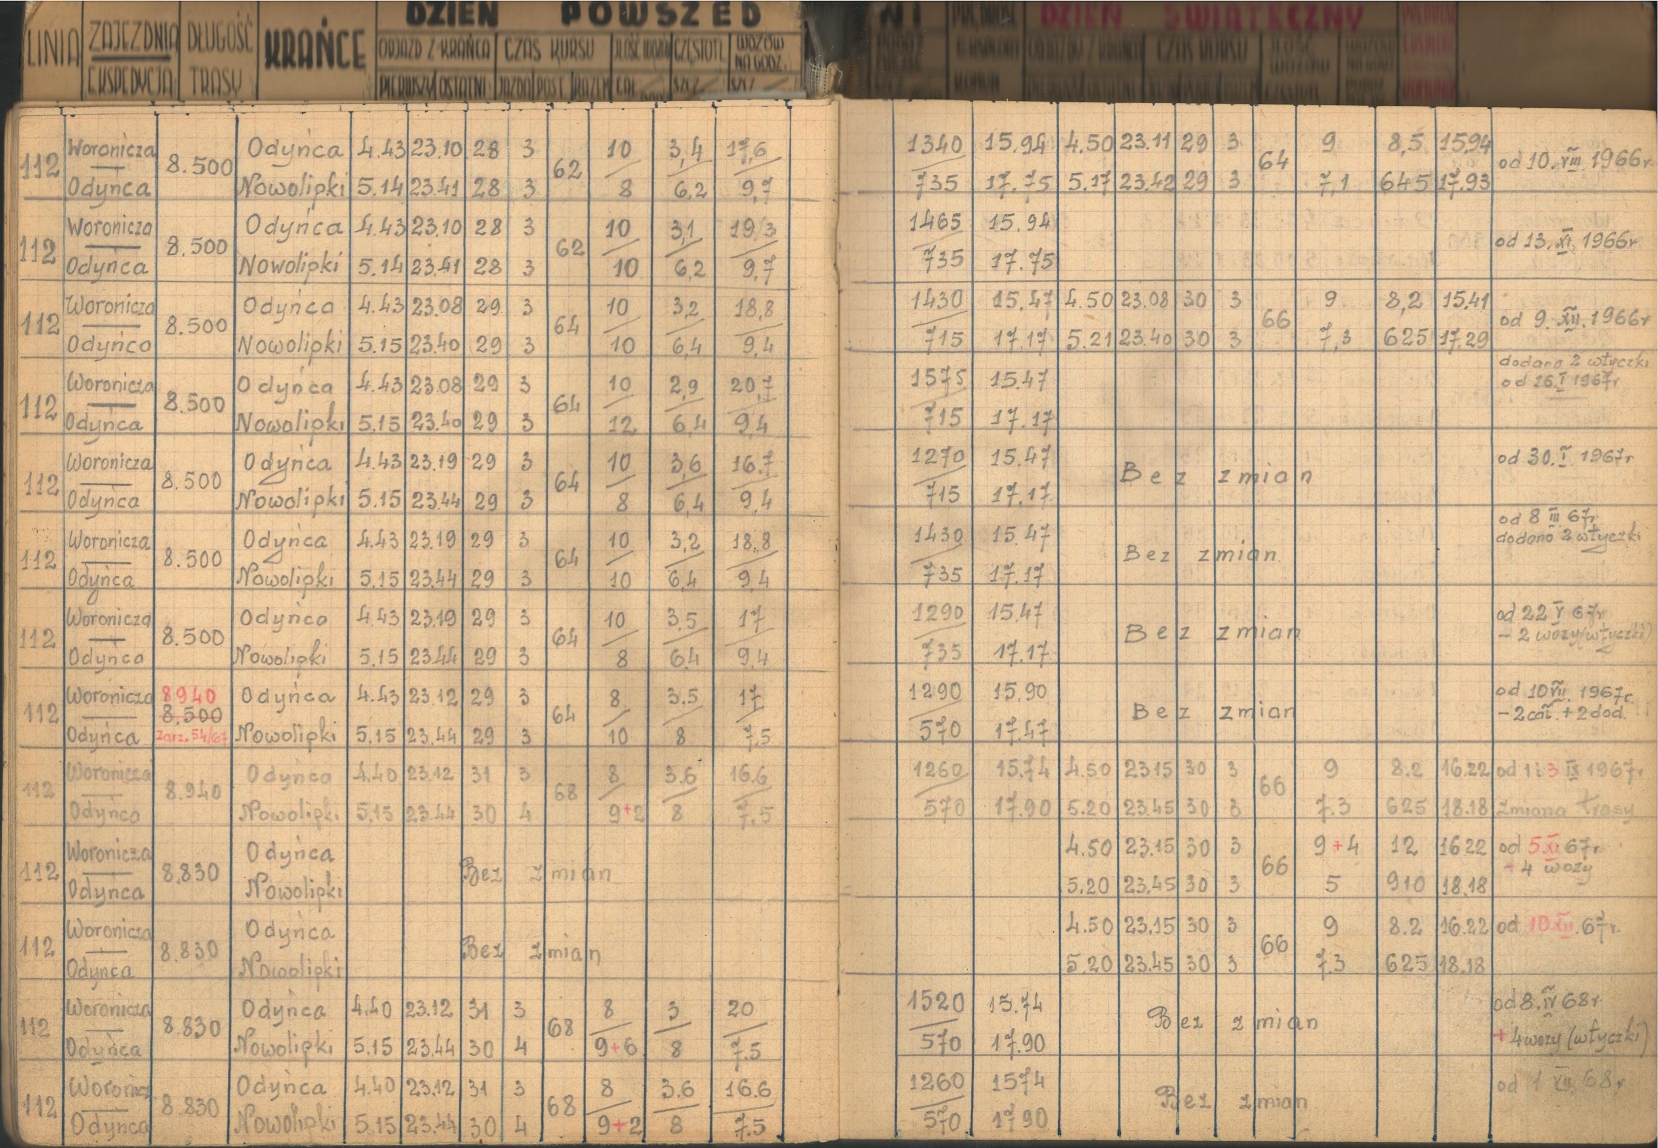 DZIEŃ POWSZED NI DZIEŃ ŚWIĄTECZNY
LINIA ZAJEZDNIA EKSPEDYCJA DŁUGOŚĆ TRASY KRAŃCE ODJAZD Z KRAŃCA CZAS KURSU CZĘSTOTL. WOZÓW NA GODZ.
PIERWSZY OSTATNI JAZDA POST. RAZEM
112 Woronicza 8.500 Odyńca 4.43 23.10 28 3 62 10 3,4 17,6 1340 15.94 4.50 23.11 29 3 64 9 8,5 1594 od 10. VIII 1966r.
Odyńca Nowolipki 5.14 23.41 28 3 8 6,2 9,7 735 17.75 5.17 23.42 29 3 7,1 645 17.93
112 Woronicza 8.500 Odyńca 4.43 23.10 28 3 62 10 3,1 19,3 1465 15.94 od 13. XI. 1966r.
Odyńca Nowolipki 5.14 23.41 28 3 10 6,2 9,7 735 17.75
112 Woronicza 8.500 Odyńca 4.43 23.08 29 3 64 10 3,2 18,8 1430 15.47 4.50 23.08 30 3 66 9 8,2 15.41 od 9. XII. 1966r
Odyńco Nowolipki 5.15 23.40 29 3 10 6,4 9,4 715 17.17 5.21 23.40 30 3 7,3 625 17.29
112 Woronicza 8.500 Odyńca 4.43 23.08 29 3 64 10 2,9 20,7 1575 15.47 dodano 2 wtyczki
od 26. I 1967r
Odyńca Nowolipki 5.15 23.40 29 3 12 6,4 9,4 715 17.17
112 Woronicza 8.500 Odyńca 4.43 23.19 29 3 64 10 3,6 16.7 1270 15.47 Bez zmian od 30. I 1967r
Odyńca Nowolipki 5.15 23.44 29 3 8 6,4 9,4 715 17.17
112 Woronicza 8.500 Odyńca 4.43 23.19 29 3 64 10 3,2 18,8 1430 15.47 Bez zmian od 8 III 67r
dodano 2 wtyczki
Odyńca Nowolipki 5.15 23.44 29 3 10 6,4 9,4 735 17.17
112 Woronicza 8.500 Odyńca 4.43 23.19 29 3 64 10 3,5 17 1290 15.47 Bez zmian od 22 V 67r
- 2 wozy(wtyczki)
Odyńca Nowolipki 5.15 23.44 29 3 8 6.4 9,4 735 17.17
112 Woronicza 8940 8.500 Odyńca 4.43 23.12 29 3 64 8 3.5 17 1290 15.90 Bez zmian od 10 VII 1967r.
- 2 cał. + 2 dod.
Odyńca zarz. 54/67 Nowolipki 5.15 23.44 29 3 10 8 7.5 570 17.47
112 Woronicza 8.940 Odyńca 4.40 23.12 31 3 68 8 3.6 16.6 1260 15.74 4.50 23.15 30 3 66 9 8.2 16.22 od 1 i 3 IX 1967r
Odyńca Nowolipki 5.15 23.44 30 4 9+2 8 7.5 570 17.90 5.20 23.45 30 3 7.3 625 18.18 zmiana trasy
112 Woronicza 8.830 Odyńca Bez zmian 4.50 23.15 30 3 66 9+4 12 1622 od 5 XI 67r.
+ 4 wozy
Odyńca Nowolipki 5.20 23.45 30 3 5 910 18.18
112 Woronicza 8.830 Odyńca Bez zmian 4.50 23.15 30 3 66 9 8.2 16.22 od 10 XII. 67r.
Odyńca Nowolipki 5.20 23.45 30 3 7.3 625 18.18
112 Woronicza 8.830 Odyńca 4.40 23.12 31 3 68 8 3 20 1520 15.74 Bez zmian od 8. IV 68r
Odyńca Nowolipki 5.15 23.44 30 4 9+6 8 7.5 570 17.90 + 4 wozy (wtyczki)
112 Woronicz 8.830 Odyńca 4.40 23.12 31 3 68 8 3.6 16.6 1260 1574 Bez zmian od 1 XII. 68r
Odyńca Nowolipki 5.15 23.44 30 4 9+2 8 7.5 570 1790